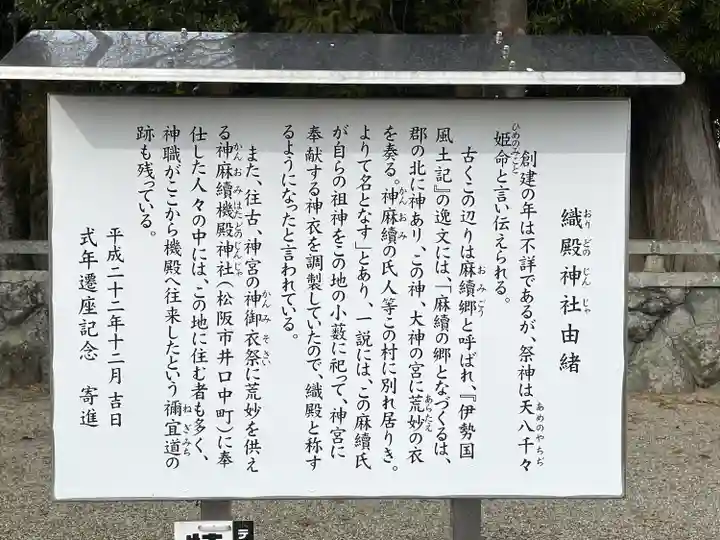 織殿神社由緒
おり どの じん じゃ
創建の年は不詳であるが、祭神は天八千々
あめのやちぢ
姫命と言い伝えられる。
ひめのみこと
古くこの辺りは麻續郷と呼ばれ、『伊勢国
おみごう
風土記』の逸文には、「麻續の郷となづくるは、
郡の北に神あり、この神、大神の宮に荒妙の衣
あらたえ
を奏る。神麻續の氏人等この村に別れ居りき。
かんおみ
よりて名となす」とあり、一説には、この麻續氏
が自らの祖神をこの地の小薮に祀って、神宮に
奉献する神衣を調製していたので、織殿と称す
るようになったと言われている。
また、往古、神宮の神御衣祭に荒妙を供え
かんみそさい
る神麻續機殿神社(松阪市井口中町)に奉
かんおみはたどのじんじゃ
仕した人々の中には、この地に住む者も多く、
神職がここから機殿へ往来したという禰宜道の
ねぎみち
跡も残っている。
平成二十二年十二月吉日
式年遷座記念 寄進
テ